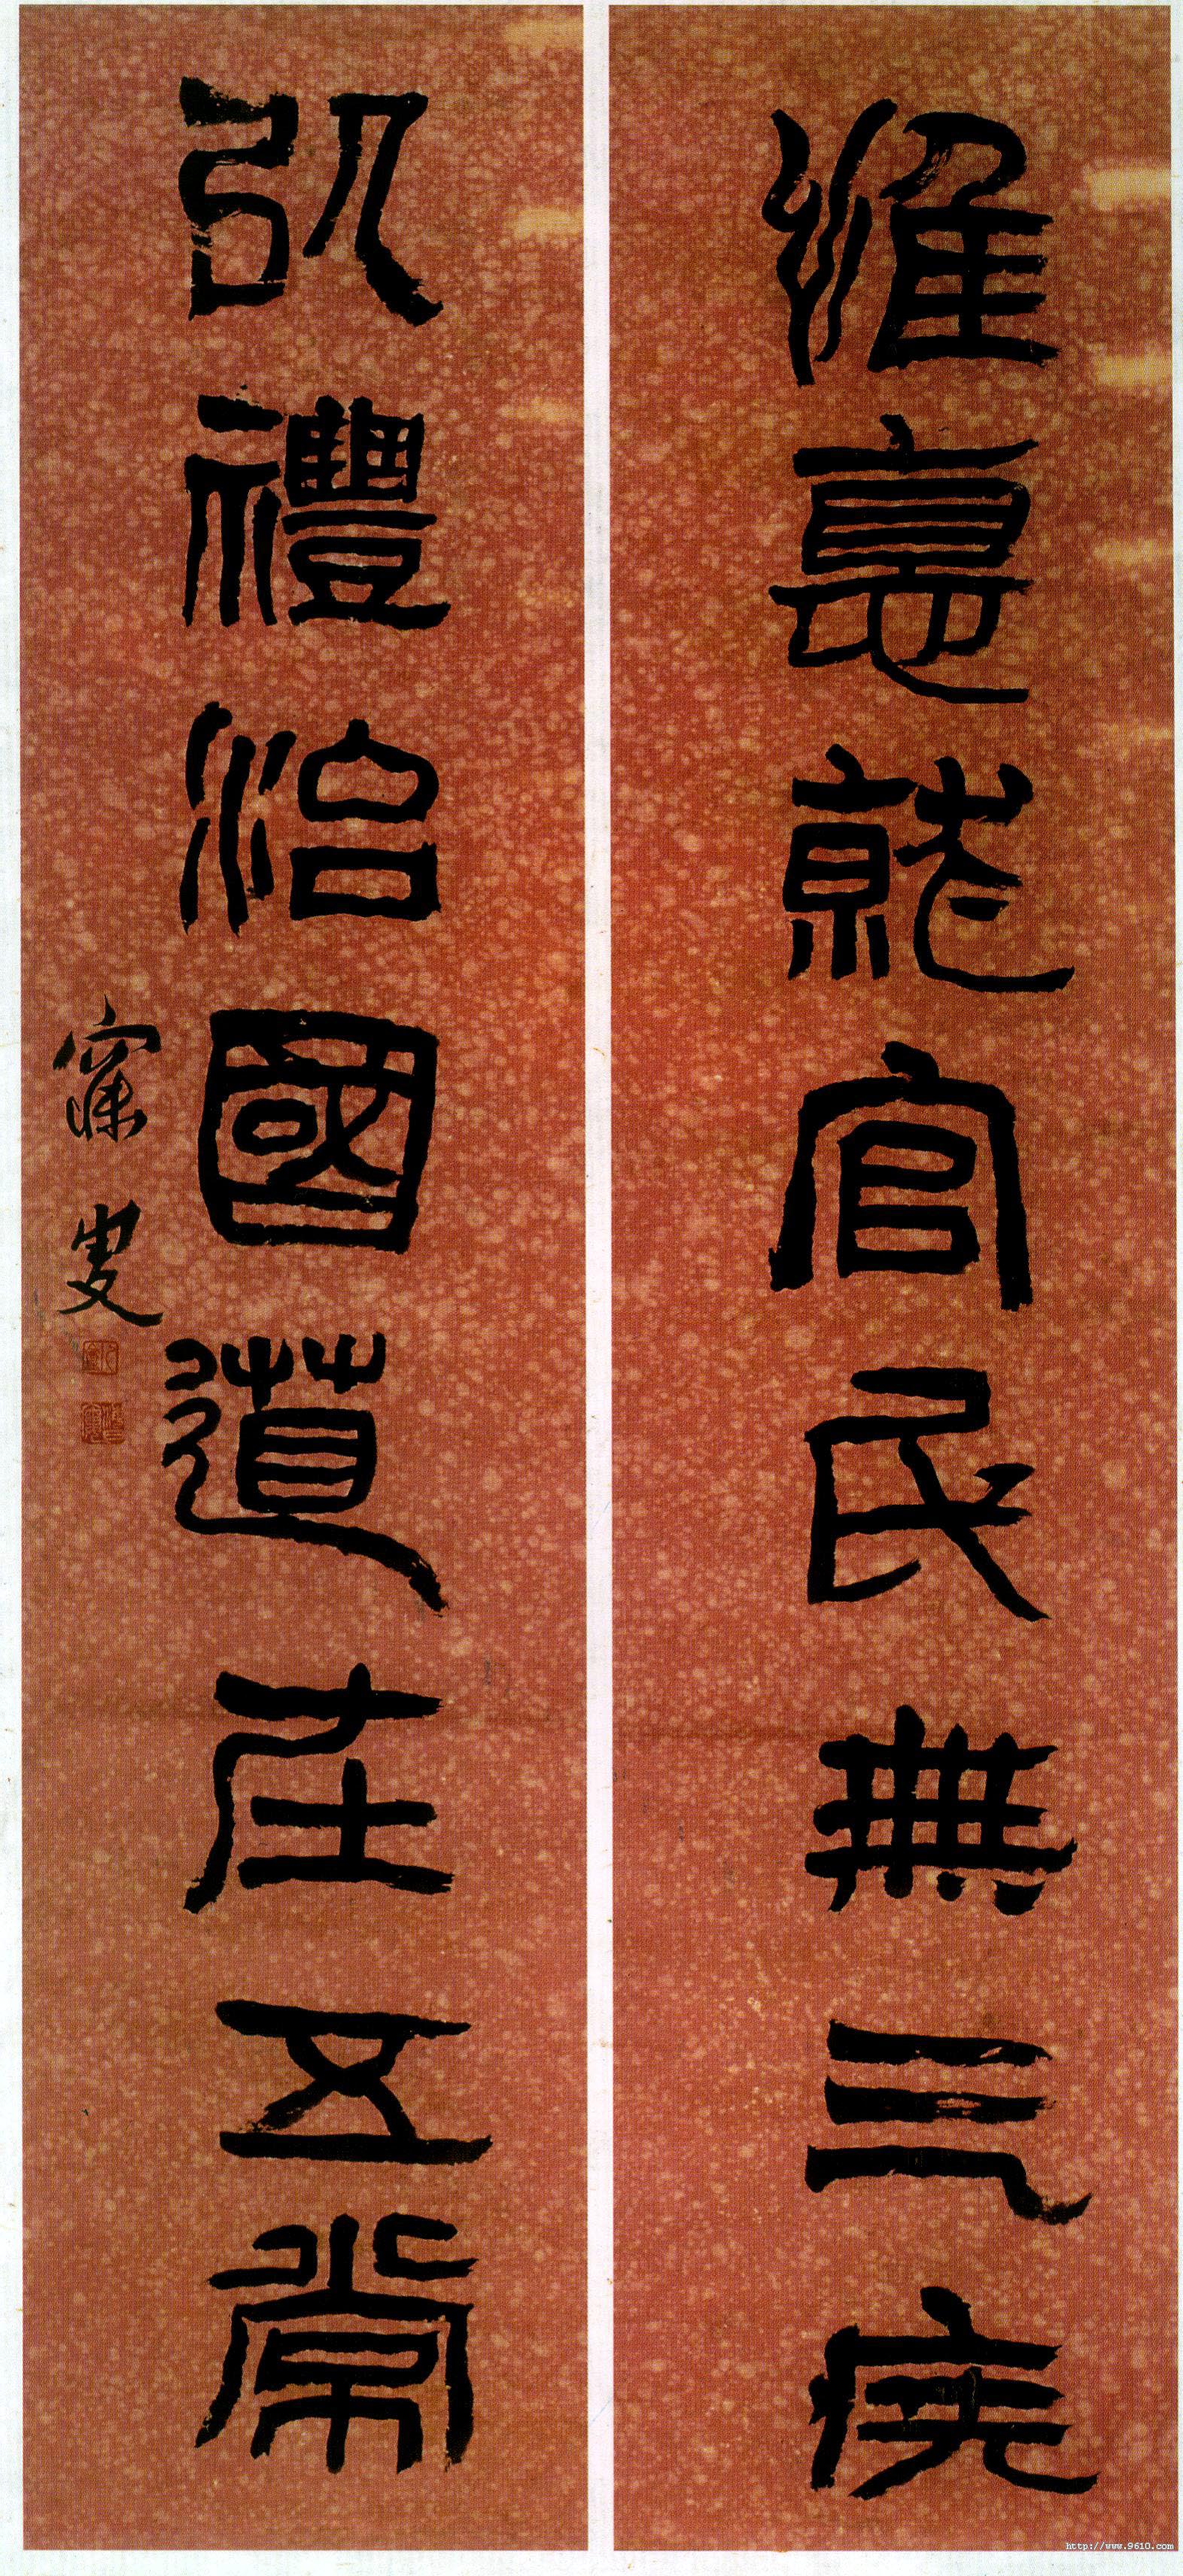 惟惪就官民無三疾
㠯禮治國道在五常
寐叟
http://www.9610.com